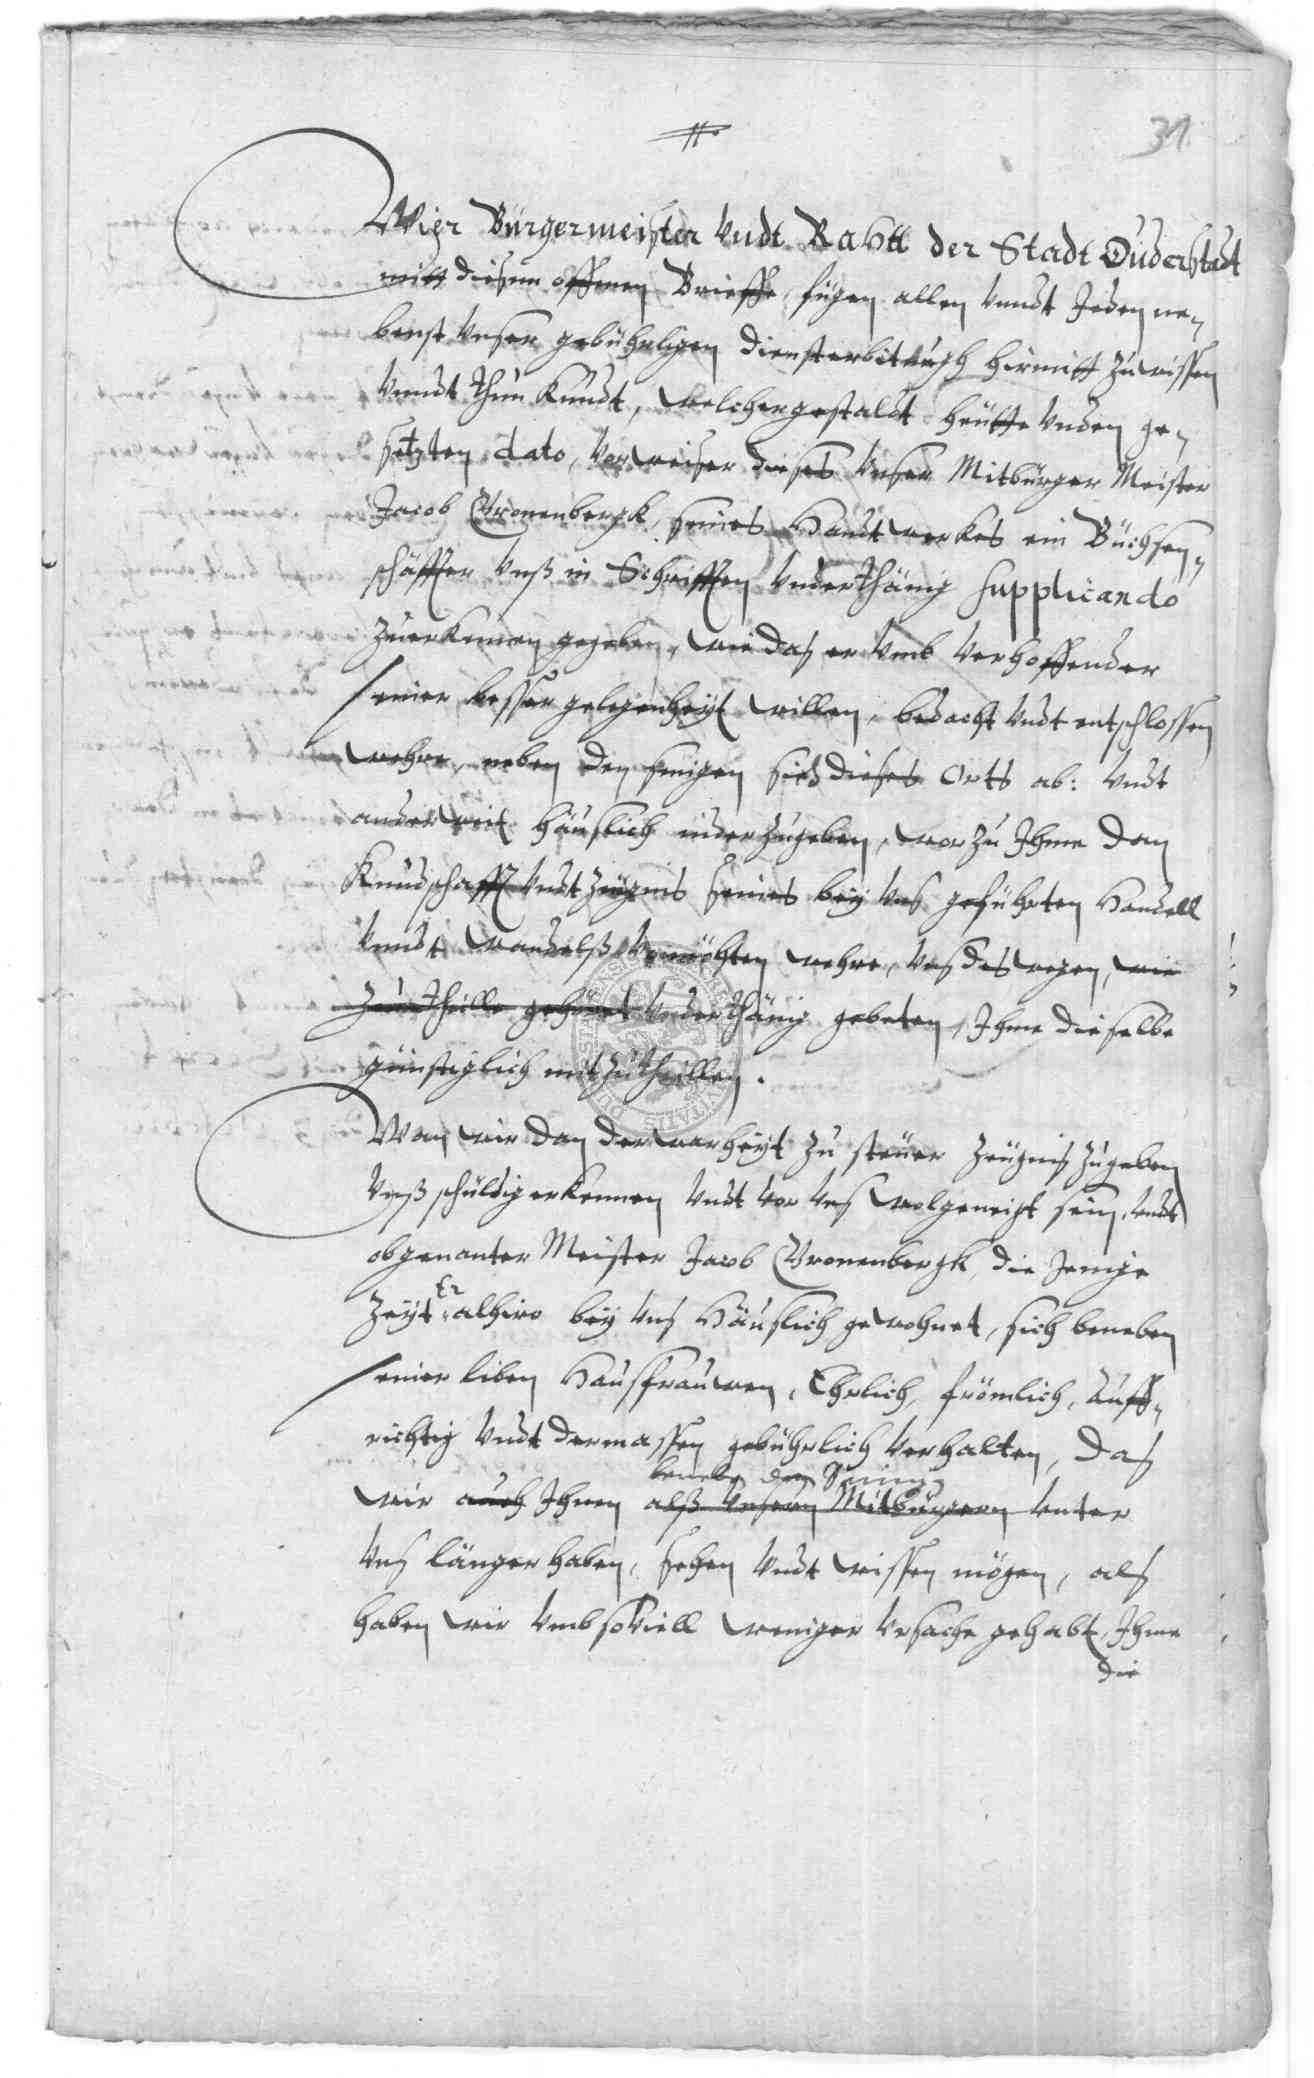 31
Wier Bürgermeister Undt Rahtt der Stadt Duderstadt
mitt diesem offenen Brieffe, fügen allen Unndt Jeden ne„
benst Unser gebührligen Diensterbitung hirmitt zuwissen
Unndt thun Kundt, welchergestaldt heutte Unden ge„
setzten dato, Vorweiser dieses Unser Mitbürger Meister
Jacob Cronenbergk, seines Handtwerkes ein Büchsen„
schäffter Unß in Schrifften Underthänig supplicando
zuerkennen gegeben, wie das er Umb Verhoffender
seiner besser gelegenheyt willen, bedacht Undt entschlossen
wehre, neben den seinigen sich dieses Orts ab: Undt
anderweit häuslich niderzugeben, worzu Ihme dan
Kundschafft Undt Zeugnis seines bey Uns geführten Handell
Unndt Wandelß Vonnöhten wehre, Uns deswegen, wie
zum theille gehöret Underthänig gebeten, Ihme dieselbe
günstiglich mitzutheillen.
Wan wir dan der warheyt zu steuer Zeugnis zugeben
Unß schuldig erkennen Undt vor Uns wolgeneigt sein, Undt
obgenanter Meister Jacob Cronenbergk, die Jenige
Zeyt Er alhiro bey Uns Häuslich gewohnet, sich beneben
seiner liben Hausfrauwen, Ehrlich, frömlich, auff„
richtig Undt dermassen gebührlich Verhalten, das
beneben den Seinigen
wir auch Ihnen alß Unsern Mitbürgern Unter
Uns länger haben, sehen Undt wissen mögen, als
haben wir Umb soviell weniger Ursache gehabt, Ihme
die